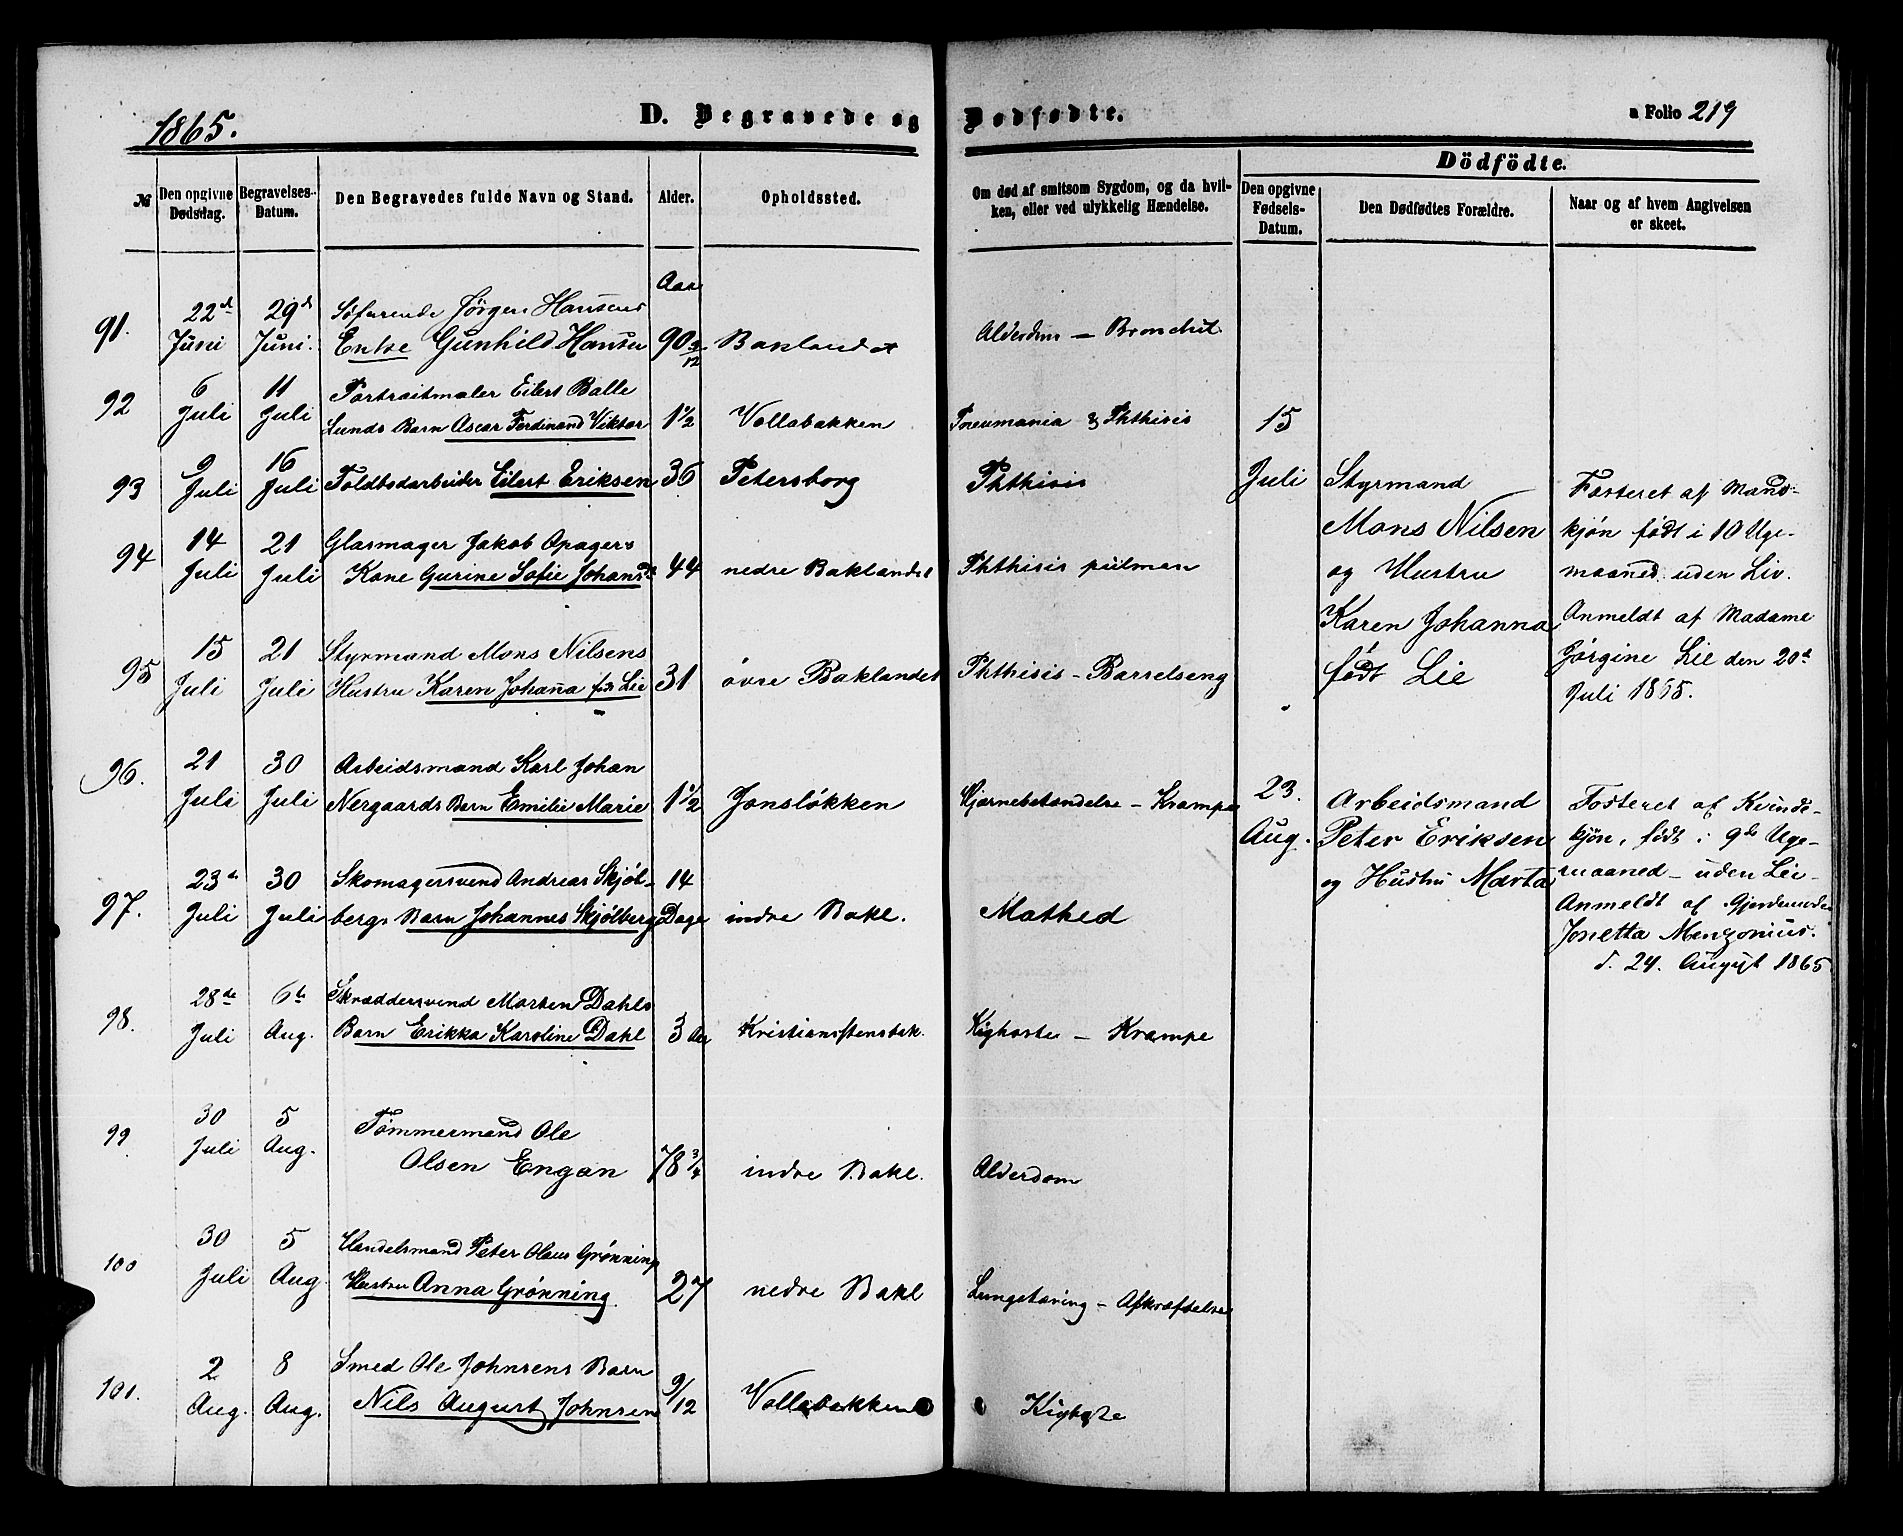 1865.
D. Begravede og Dødfødte.
a Folio 219
Dödfödte.
№
Den opgivne Dødsdag.
Begravelses-Datum.
Den Begravedes fulde Navn og Stand.
Alder.
Opholdssted.
Om død af smitsom Sygdom, og da hvil-
ken, eller ved ulykkelig Hændelse.
Den opgivne Fødsels-Datum.
Den Dødfødtes Forældre.
Naar og af hvem Angivelsen
er skeet.
Aar
22d 29d Söfarende Jørgen Hansens
91. Juni Juni. Enke Gunhild Hansen 90 3/12 Baklandet Alderdom – Bronchit.
6 11 Portraitmaler Eilert Balle
92 Juli Juli Lunds Barn Oscar Ferdinand Viktor 1 1/2 Vollabakken Pneumonia & Phthisis
9 16
93 Juli Juli Toldbodarbeider Eilert Eriksen 36 Petersborg Phthisis
14 21 Glasmager Jakob Opagers
94 Juli Juli Kone Gurine Sofie Johansd. 44 nedre Baklandet Phthisis pulmon
15 21 Styrmand Mons Nilsens
95 Juli Juli Hustru Karen Johanna f. Lie 31 övre Baklandet Phthisis – Barselseng
21 30 Arbeidsmand Karl Johan
96. Juli Juli Nergaards Barn Emilie Marie 1 1/2 Jonsløkken Hjernebetændelse – Krampe
23d 30 Skomagersvend Andreas Skjöl- 14
97. Juli Juli bergs Barn Johannes Skjölberg Dage indre Bakl. Mathed
28de 6te Skræddersvend Morten Dahls
98. Juli Aug. Barn Erikka Karoline Dahl 3 Aar Kristianstensbak. Kighoste – Krampe
30 5 Tømmermand Ole
99 Juli Aug. Olsen Engan 78 3/4 indre Bakl. Alderdom
30 5 Handelsmand Peter Olaus Grønning
100 Juli Aug. Hustru Anna Grønning 27 nedre Bakl Lungetæring – Afkræftelse
2 8 Smed Ole Johnsens Barn
101. Aug. Aug. Nils August Johnsen 9/12 Vollabakken Kighoste
15
Juli Styrmand
Mons Nilsen
og Hustru
Karen Johanna
født Lie
Fosteret af Mands-
kjön födt i 10 Uge-
maaned. uden Liv.
Anmeldt af Madame
Jørgine Lie den 20d
Juli 1865.
23.
Aug. Arbeidsmand
Peter Eriksen
og Hustru Marta
Fosteret af Kvinde-
kjön, født i 9de Uge-
maaned – uden Liv –
Anmeldt af Gjordemoder
Jonetta Menzonius.
d. 24. August 1865